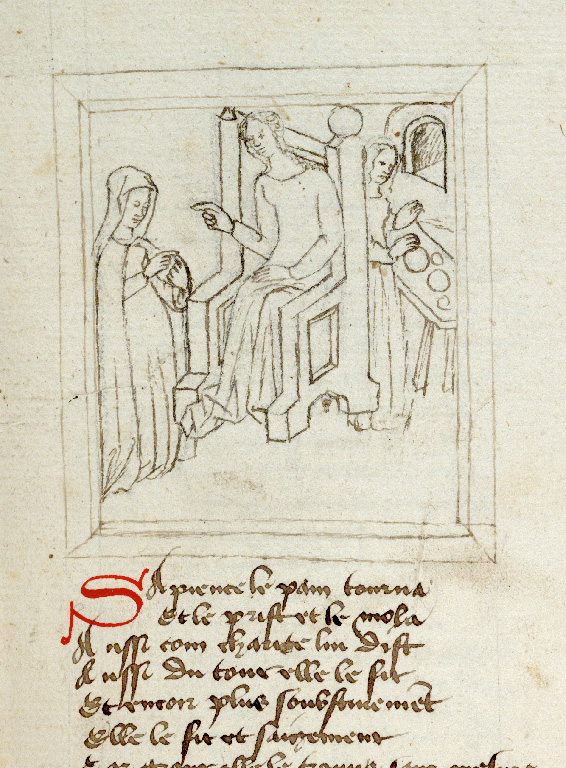 Sapience le pain tourna
Et le prist et le mola
Aussi com charite lui dist
Aussi du tout elle le fit
Et encor plus soubstiuement
Elle le fit et saigement